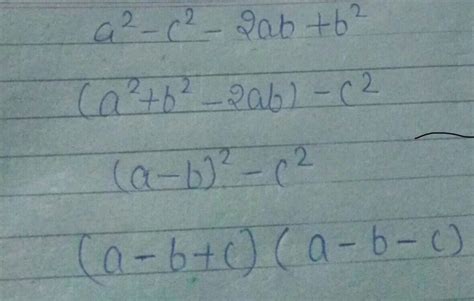 a² - c² - 2ab + b²
(a² + b² - 2ab) - c²
(a - b)² - c²
(a - b + c) (a - b - c)